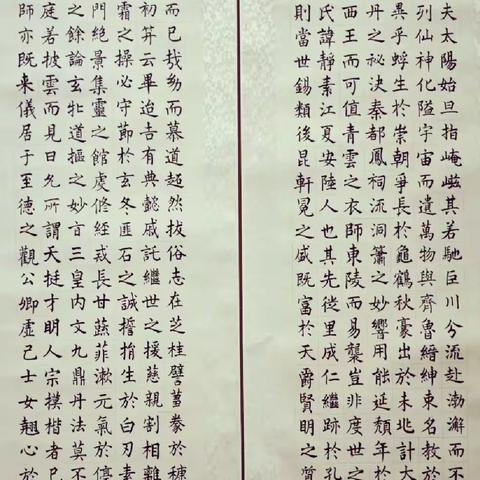 夫太陽始旦指崦嵫其若馳巨川兮流赴渤澥而不
列仙神化隘宇宙而遺萬物與齊魯縉紳東名教於
異乎蜉生於崇朝爭長於龜鶴秋豪出於未兆計大
丹之祕決秦都鳳祠流洞簫之妙響用能延頹年於
西王而可值青雲之衣師東陵而易襲豈非度世之
氏諱靜素江夏安陸人也其先徙里成仁繼跡於孔
則當世錫類後昆軒冕之盛既富於天爵賢明之質
而已哉幼而慕道超然拔俗志在芝桂譬蒭豢於穅
初笄云畢迨吉有典懿戚託繼世之援慈親割相離
霜之操必守節於玄冬匪石之誠擔捐生於白刃素
門絕景集靈之館虔修經戒長甘蔬菲漱元氣於停
之餘論玄牝道樞之妙言三皇內文九鼎丹法莫不
庭若披雲而見日允所謂天挺才明人宗模楷者已
師亦既来儀居于至德之觀公卿虛己士女翹心於